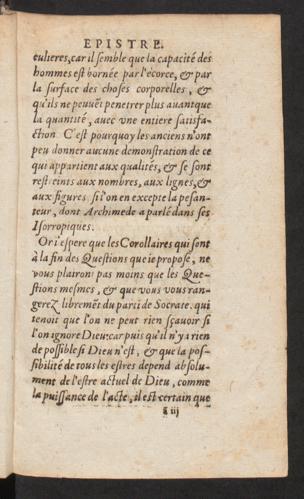 EPISTRE.
culieres, car il semble que la capacité des
hommes est bornée par l'écorce, & par
la surface des choses corporelles, &
qu'ils ne peuuẽt penetrer plus auant que
la quantité, auec vne entiere satisfa-
ction C'est pourquoy les anciens n'ont
peu donner aucune demonstration de ce
qui appartient aux qualités, & se sont
restreints aux nombres, aux lignes, &
aux figures si l'on en excepte la pesan-
teur, dont Archimede a parlé dans ses
Isorropiques.
Or i'espere que les Corollaires qui sont
à la fin des Questions que ie propose, ne
vous plairont pas moins que les Que-
stions mesmes, & que vous vous ran-
gerez libremẽt du parti de Socrate. qui
tenoit que l'on ne peut rien sçauoir si
l'on ignore Dieu: car puis qu'il n'y a rien
de possible si Dieu n'est, & que la pos-
sibilité de tous les estres depend absolu-
ment de l'estre actuel de Dieu, comme
la puissance de l'acte, il est certain que
ã iij